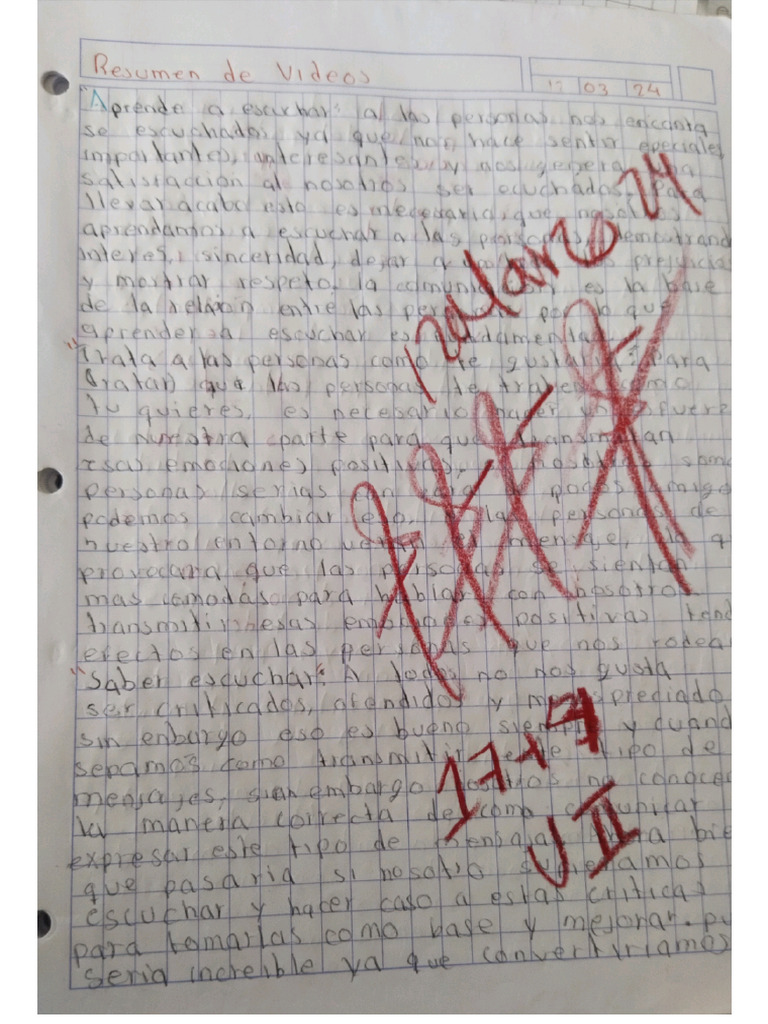 Resumen de Videos
12 03 24
"Aprende a escuchar": a las personas nos encanta
se escuchados ya que non hace sentir epeciales
importantes, interesantes y nos genera una
satisfacción al nosotros ser ecuchados. Para
llevar acabo esto es mecesario, que nosotros
aprendamos a escuchar a las personas, demostrand
interes, sinceridad, dejar a prejuicio
y mostrar respeto, la comunicación es la base
de la relaión entre las personas por lo que
aprender a escuchar es fundamental
"Trata a las personas como te gustaria": Para
tratar que las personas te traten como
tu quieres, es necesario hacer un esfuerz
de nuestra parte para que transmitan
esas emociones positivas, si nosotros somo
personas serias con cara de pocos amigo
podemos cambiar eso, las personas de
nuestro entorno veran el mensaje, lo q
provocara que las personas se sientan
mas comodas para hablar con nosotros
transmitir esas emociones positivas tend
efectos en las personas que nos rodea
"Saber escuchar": A todos no nos gusta
ser criticados, ofendidos y mesprediado
sin enburgo eso es bueno siempre y cuand
sepamos como transmitir este tipo de
mensajes, sian embargo nosotros no conoce
la manera correcta de como comunicar
expresar este tipo de mensaje, ahora bie
que pasaria si nosotro supieramos
escuchar y hacer caso a estas criticas
para tomarlas como base y mejorar. pu
seria increible ya que convertiriamos
12 marzo 24
17+7
U II